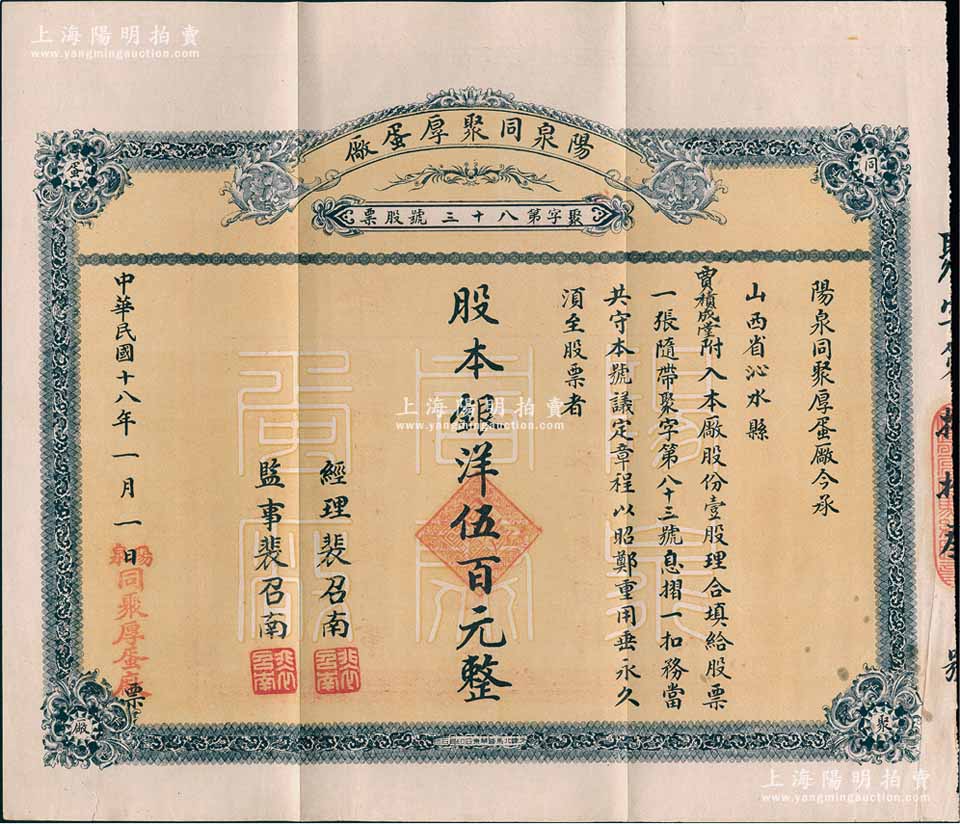 上海陽明拍賣
www.yangmingauction.com
陽泉同聚厚蛋廠
聚字第八十三號股票
同
蛋
陽泉同聚厚蛋廠今承
山西省沁水縣
賈積成堂附入本廠股份壹股理合填給股票
一張隨帶聚字第八十三號息摺一扣務當
共守本號議定章程以昭鄭重用垂永久
須至股票者
股本銀洋伍百元整
經理裴召南
監事裴召南
中華民國十八年一月一日
票
陽泉
同聚厚蛋廠
聚
廠
上海陽明拍賣
www.yangmingauction.com
上海陽明拍賣
www.yangmingauction.com